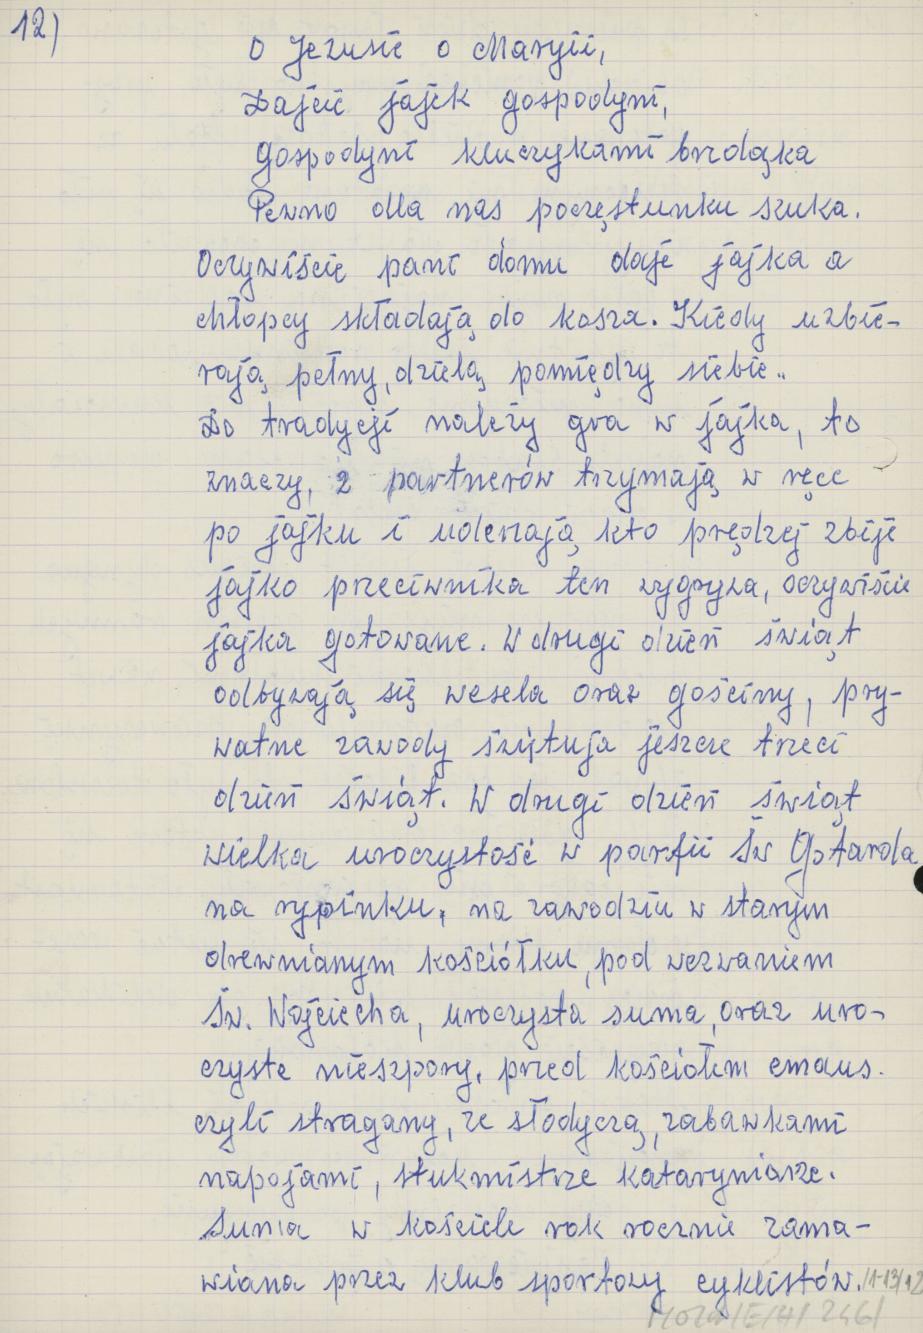 12)
O Jezusie o Maryii,
Dajcie jajek gospodyni,
Gospodyni kluczykami brzdąka
Pewno dla nas poczęstunku szuka.
Oczywiście pani domu daje jajka a
chłopcy składają do kosza. Kiedy uzbie-
rają pełny, dzielą pomiędzy siebie..
Do tradycji należy gra w jajka, to
znaczy, 2 partnerów trzymają w ręce
po jajku i uderzają kto prędzej zbije
jajko przeciwnika ten wygrywa, oczywiście
jajka gotowane. W drugi dzień świąt
odbywają się wesela oraz gościny, pry-
watne zawody świętują jeszcze trzeci
dzień świąt. W drugi dzień świąt
wielka uroczystość w parfii Św Gotarda
na rypinku, na zawodziu w starym
drewnianym kościółku, pod wezwaniem
Św. Wojciecha, uroczysta suma, oraz uro-
czyste nieszpory, przed kościołem emaus.
czyli stragany, ze słodyczą, zabawkami
napojami, stukmistrze kataryniarze.
Suma w kościele rok rocznie zama-
wiana przez klub sportowy cyklistów. /1-13/12
MOZK/E/A/246/